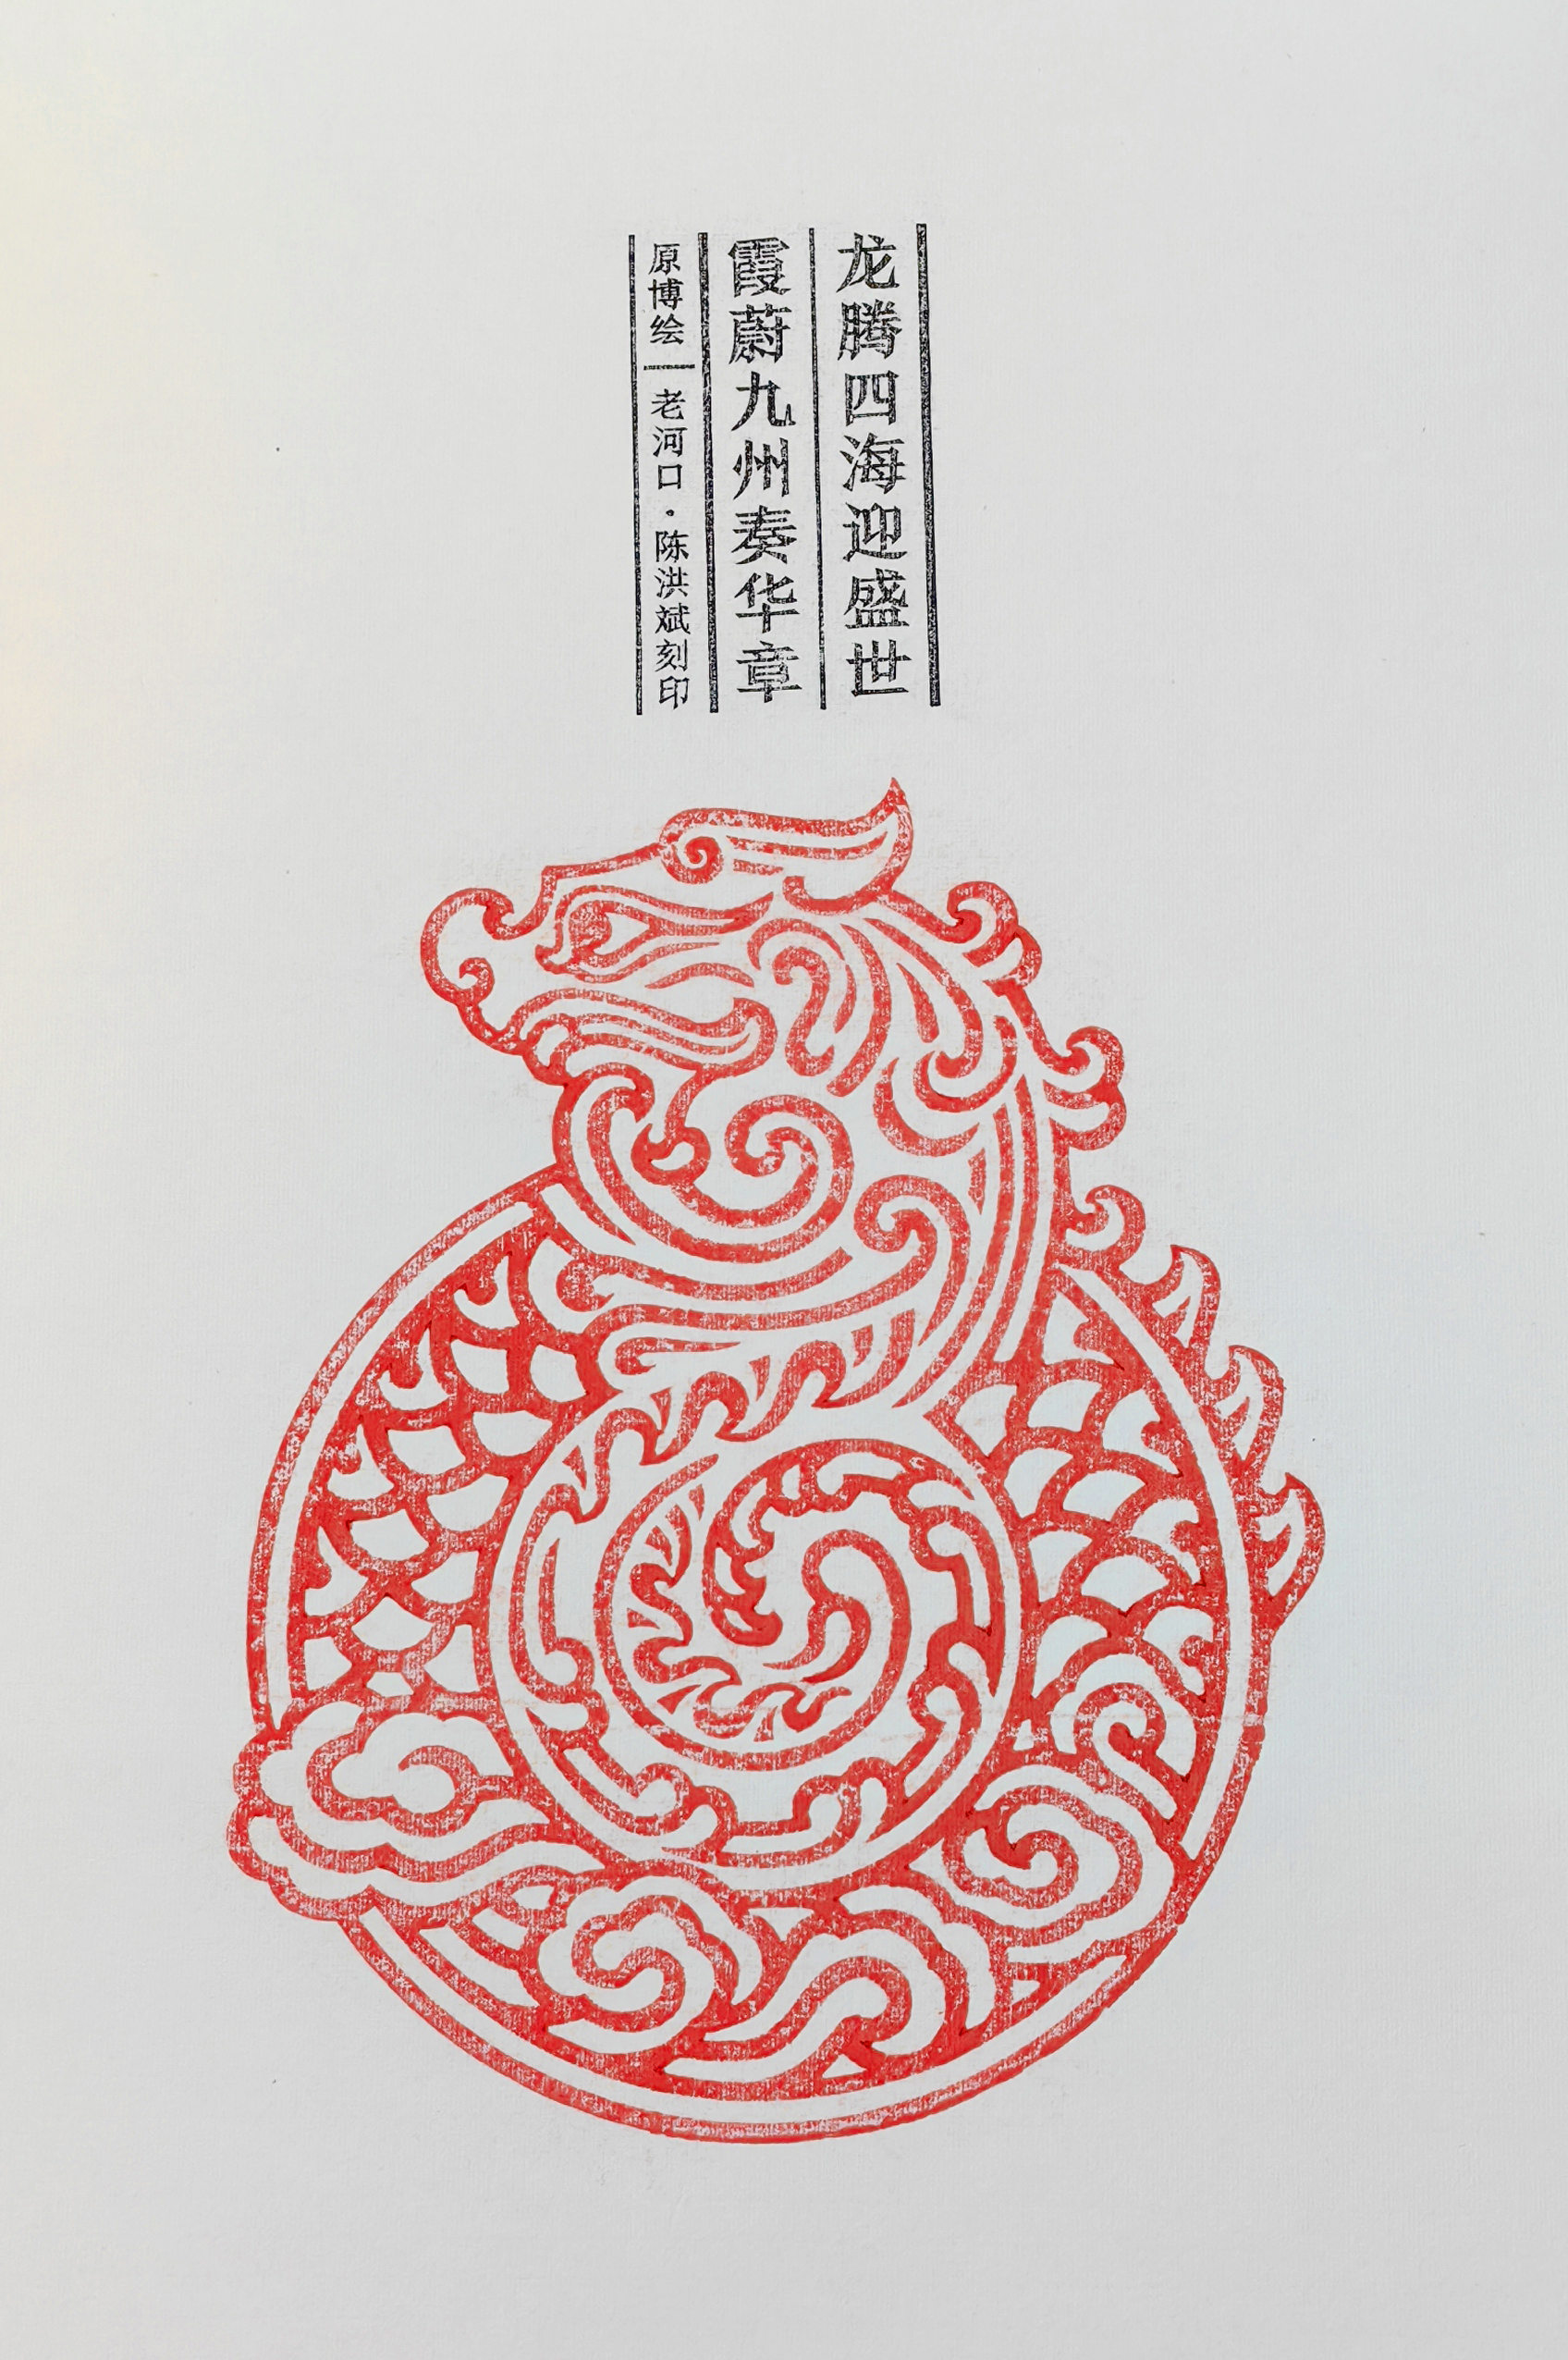 龙腾四海迎盛世
霞蔚九州奏华章
原博绘|老河口·陈洪斌刻印